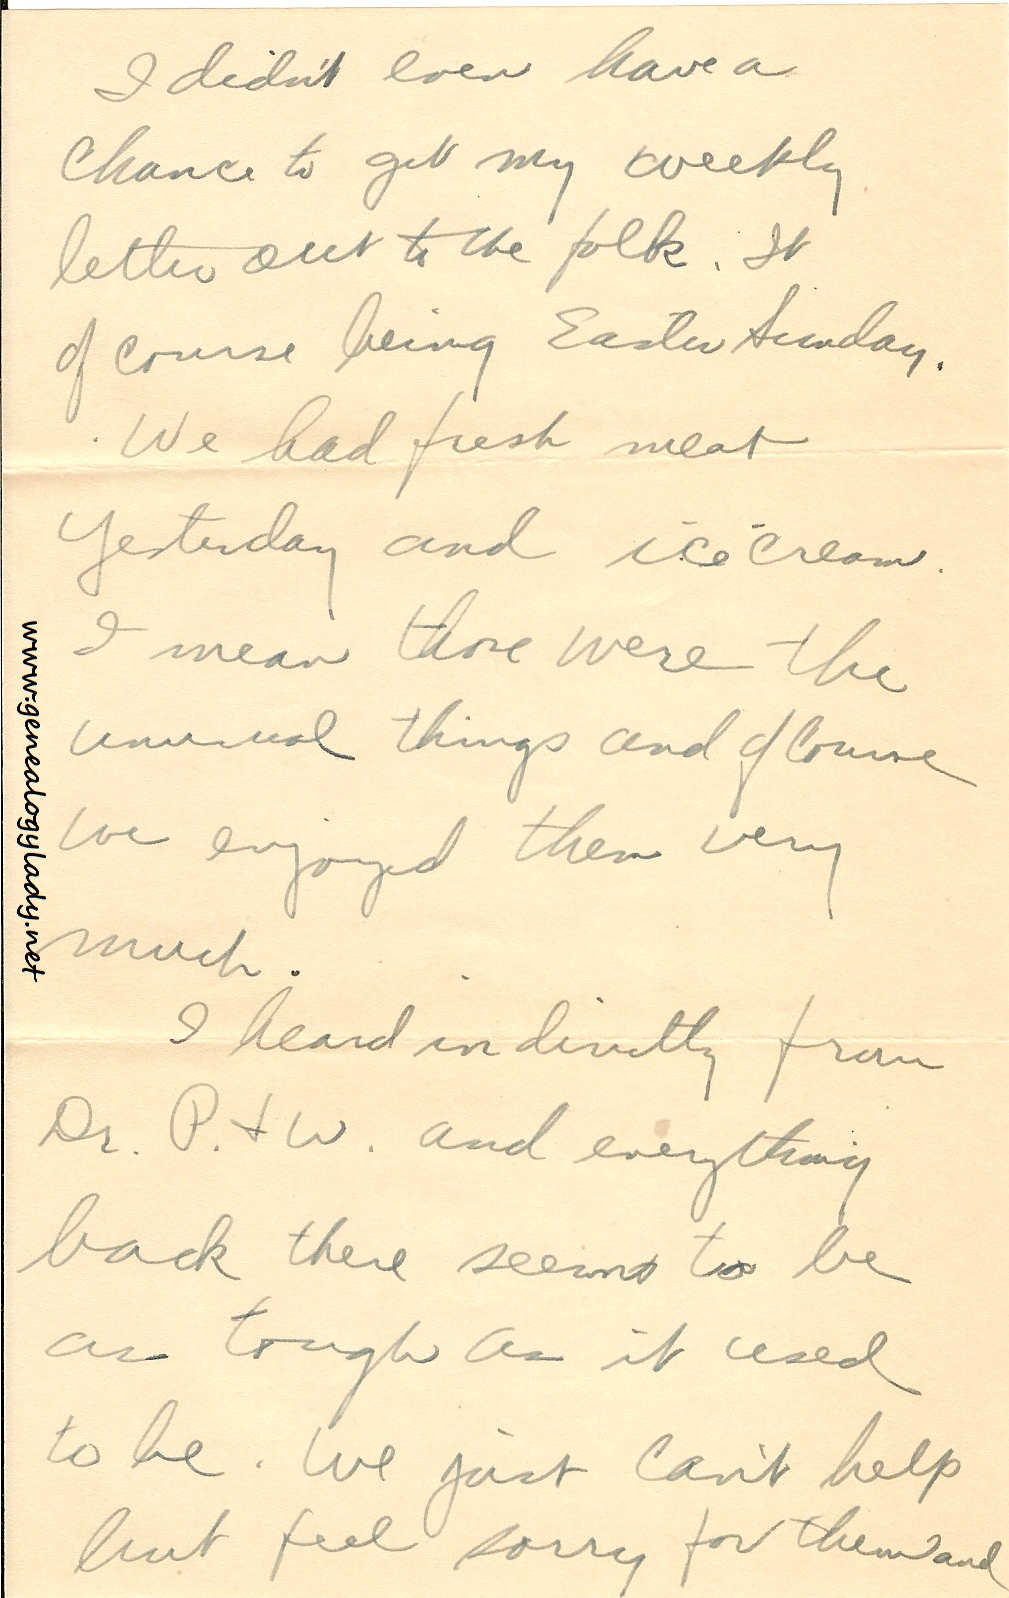 I didn't even have a
chance to get my weekly
letter out to the folk. It
of course being Easter Sunday.
We had fresh meat
yesterday and ice cream.
I mean those were the
unusual things and of course
we enjoyed them very
much.
I heard indirectly from
Dr. P. + W. and everything
back there seems to be
as tough as it used
to be. We just can't help
but feel sorry for them and
www.genealogylady.net